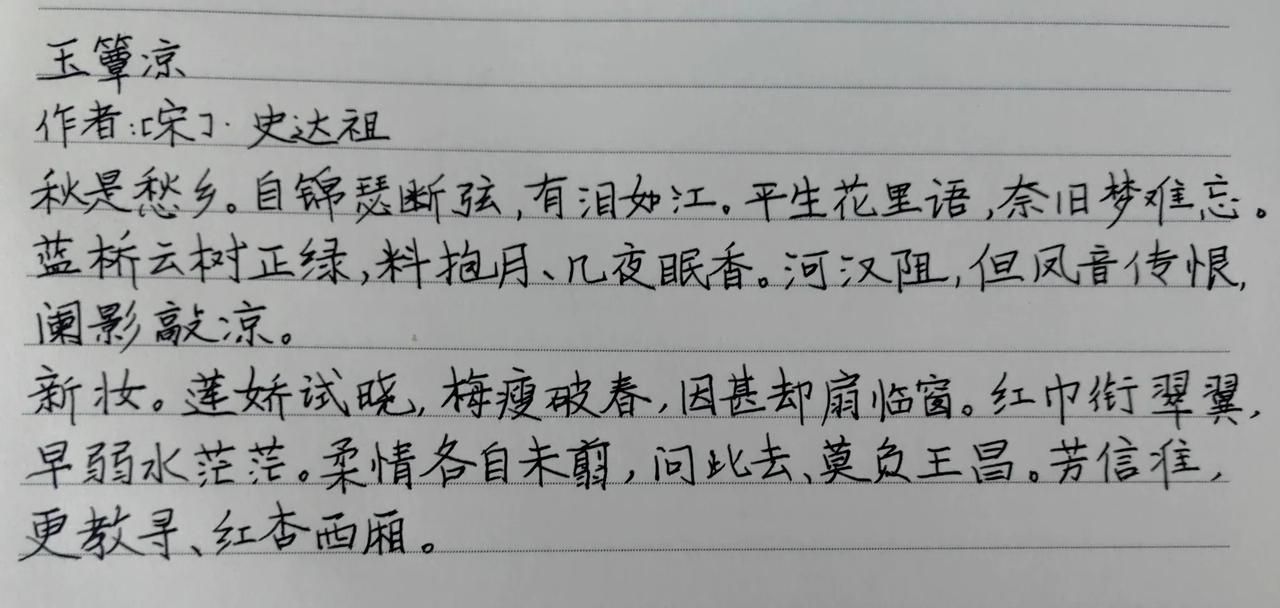 玉簟凉
作者:[宋]·史达祖
秋是愁乡。自锦瑟断弦,有泪如江。平生花里语,奈旧梦难忘。
蓝桥云树正绿,料抱月、几夜眠香。河汉阻,但凤音传恨,
阑影敲凉。
新妆。莲娇试晓,梅瘦破春,因甚却扇临窗。红巾衔翠翼,
早弱水茫茫。柔情各自未翦,问此去、莫负王昌。芳信准,
更教寻、红杏西厢。